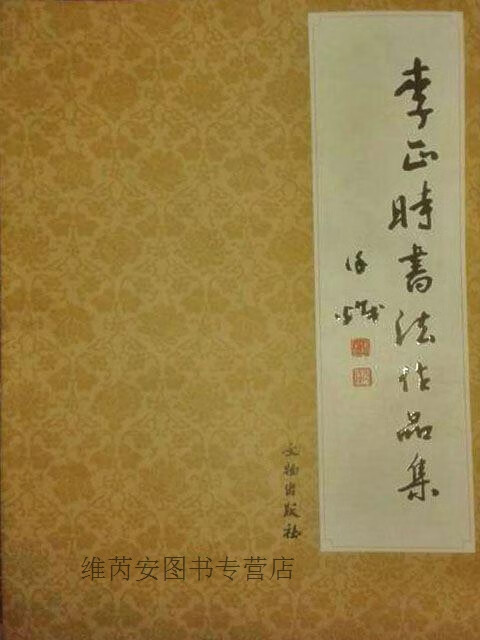 李正時書法作品集
文物出版社
维芮安图书专营店